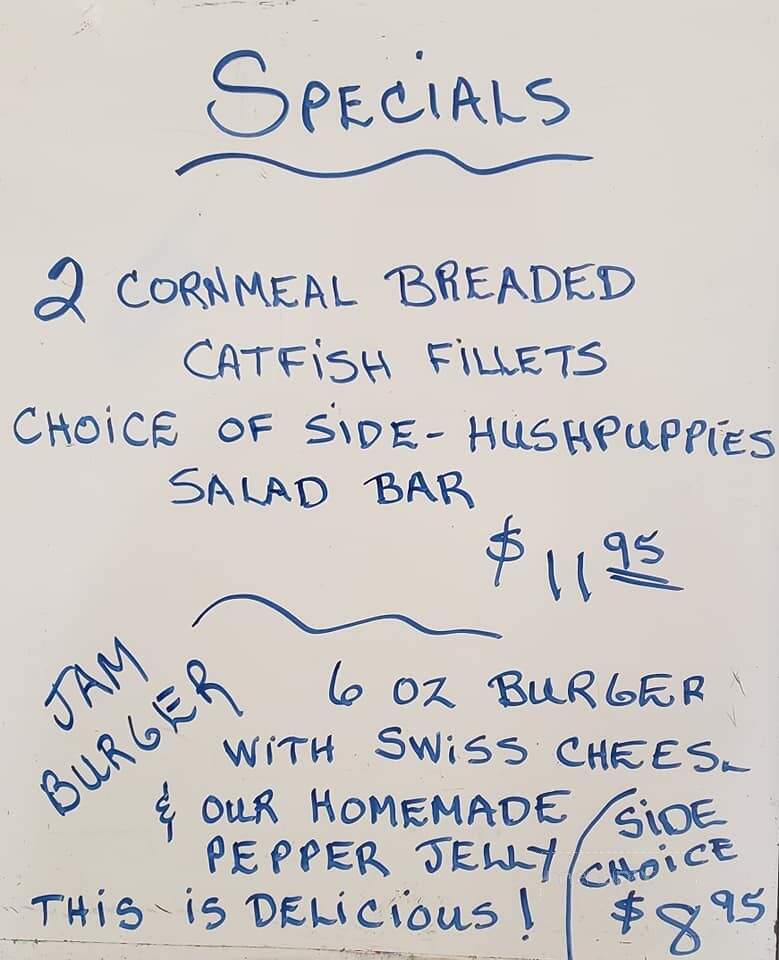 SPECiALS
2 CORNMEAL BREADED
CATFiSH FiLLETS
CHOiCE OF SiDE - HUSHPUPPiES
SALAD BAR
$ 11 95
JAM
BURGER
6 OZ BURGER
WiTH SWiSS CHEES
& OUR HOMEMADE
PEPPER JELLY
THiS iS DELiCiOUS !
SiDE
CHOiCE
$8 95